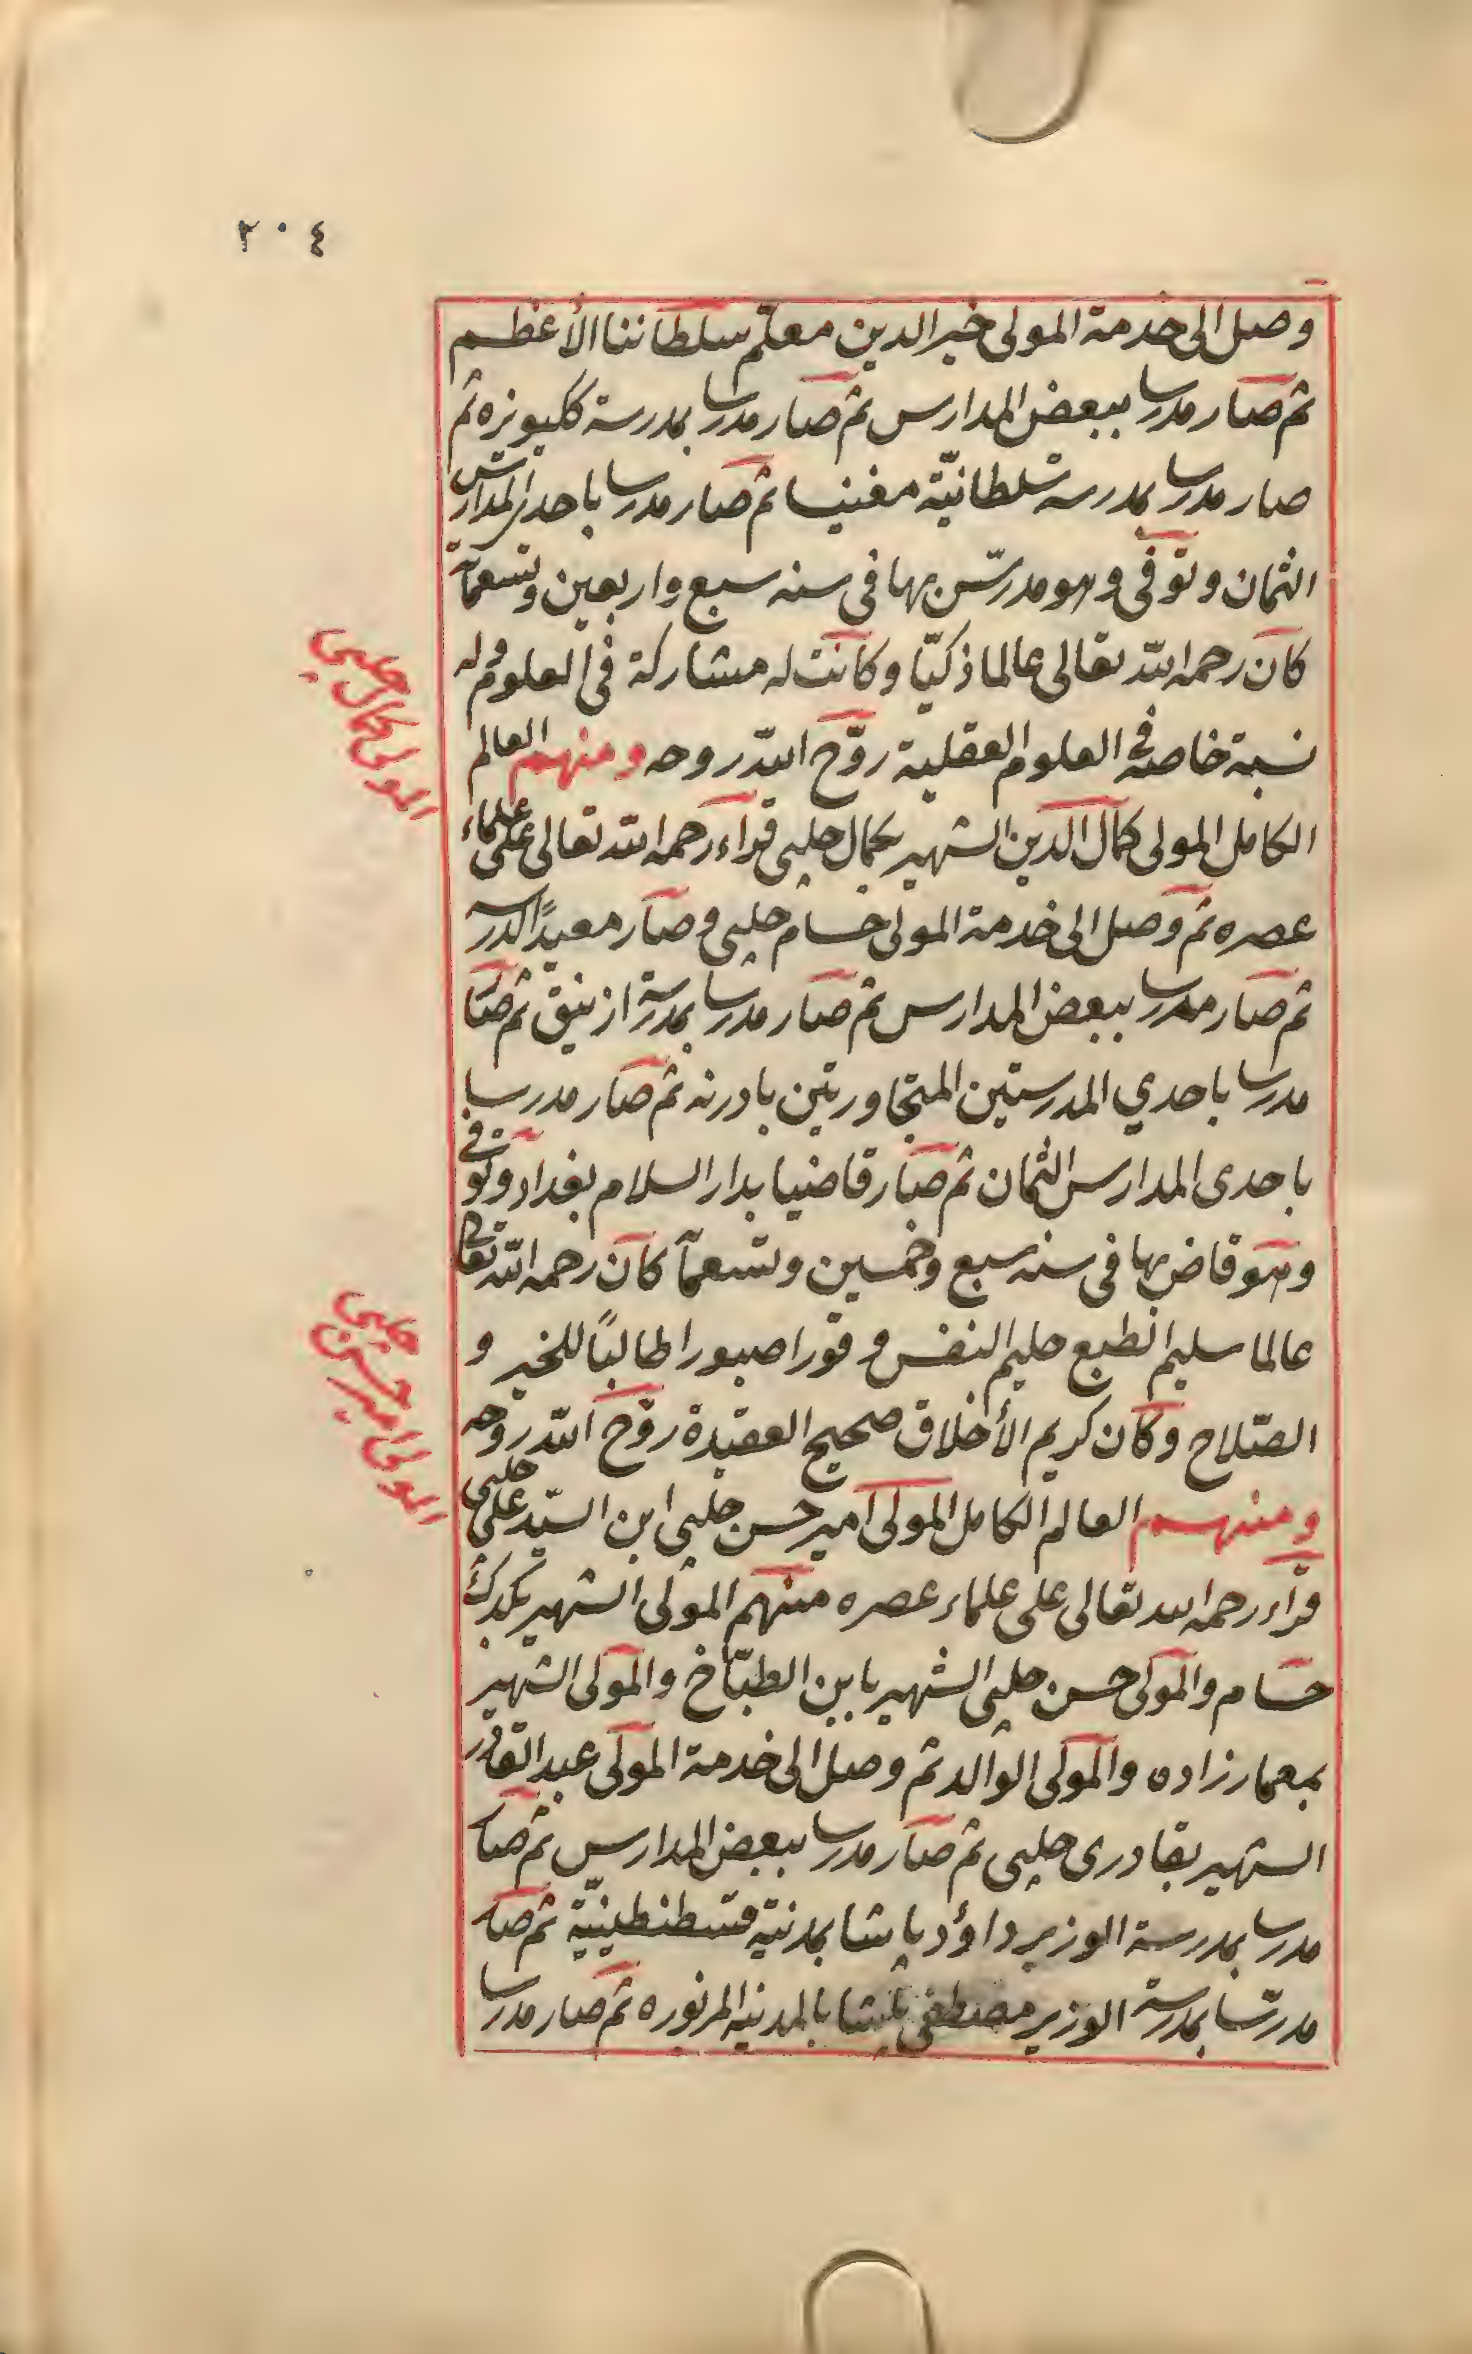 ٢٠٤
وصل الى خدمة المولى خير الدين معلّم سلطاننا الأعظم
ثم صار مدرسا ببعض المدارس ثم صار مدرسا بمدرسة ككبويزه ثم
صار مدرسا بمدرسة سلطانيّة مغنيسا ثم صار مدرسا باحدى المدارس
الثمان وتوفى وهو مدرّس بها فى سنه سبع واربعين وتسعمآئة
كان رحمه الله تعالى عالما ذكيّا وكانت له مشاركة فى العلوم وله
نسبة خاصه فى العلوم العقلية روّح الله روحه ومنهم العالم
الكامل المولى كمال الدين الشهير بكمال جلبى قراء رحمه الله تعالى على علماء
عصره ثم وصل الى خدمة المولى حسام جلبى وصار معيدًا لدرسه
ثم صار مدرسا ببعض المدارس ثم صار مدرسا بمدرسة ازنيق ثم صار
مدرسا باحدي المدرستين المتجاورتين بادرنه ثم صار مدرسا
باحدى المدارس الثمان ثم صار قاضيا بدار السلام بغداد وتوفى
وهو قاض بها فى سنه سبع وخمسين وتسعمآ كان رحمه الله تعالى
عالما سليم الطبع حليم النفس وقورا صبورا طالبًا للخير و
الصّلاح وكان كريم الأخلاق صحيح العقيدة روّح الله روحه
ومنهم العالم الكامل المولى امير حسن جلبى ابن السيّد على جلبى
قرآء رحمه الله تعالى على علماء عصره منهم المولى الشهير بكدك
حسام والمولى حسن جلبى الشهير بابن الطبّاخ والمولى الشهير
بمعمار زاده والمولى الوالد ثم وصل الى خدمة المولى عبد القادر
الشهير بقادرى جلبى ثم صار مدرسا ببعض المدارس ثم صا
مدرسا بمدرسة الوزير داؤد پاشا بمدينة قسطنطينيّة ثم صا
مدرّسا بمدرسة الوزير مصطفى پاشا بالمدينه المزبوره ثم صار مدرسا
المولى كمال جلبى
المولى امير حسن جلبى